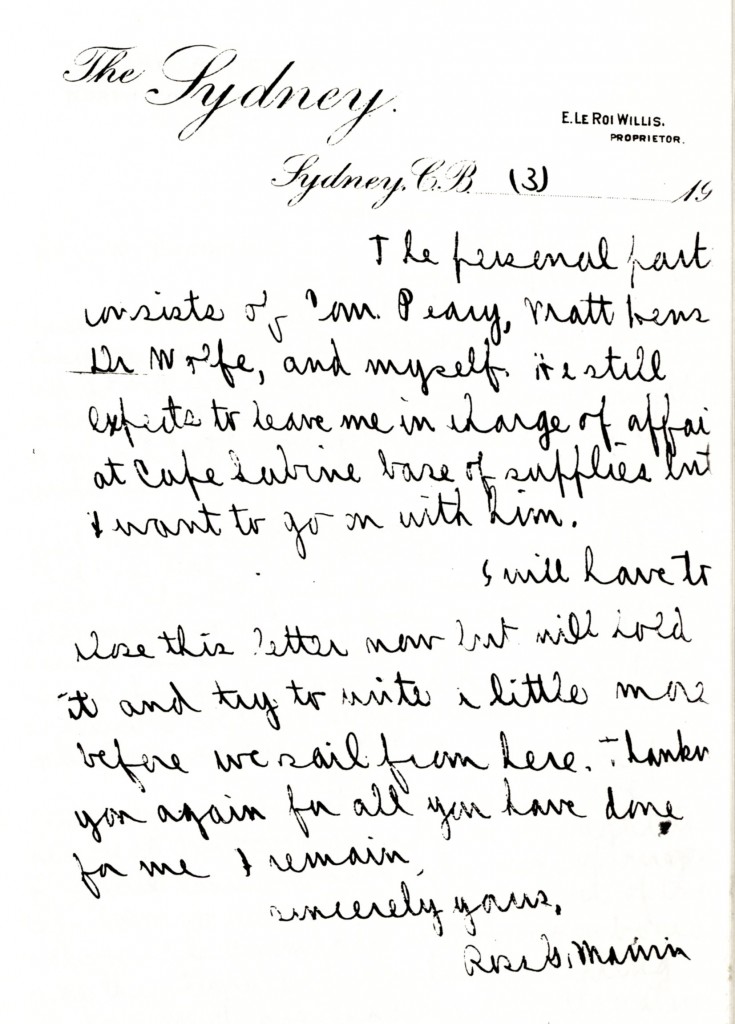 The Sydney.
E. LE ROI WILLIS.
PROPRIETOR.
Sydney, C.B. (3) 19
The personal part
consists of Com. Peary, Matt Hens
Dr Wolfe, and myself. He still
expects to leave me in charge of affai
at Cape Sabine base of supplies but
I want to go on with him.
I will have to
close this letter now but will hold
it and try to write a little more
before we sail from here. Thankin
you again for all you have done
for me I remain,
sincerely yours,
Ross G. Marvin